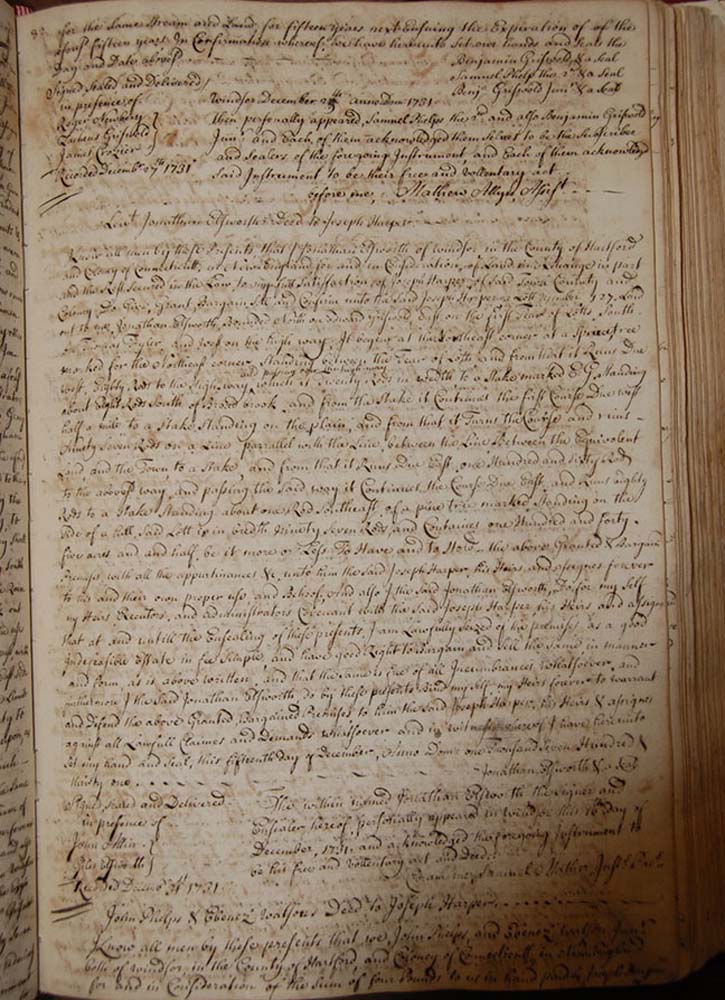 for the Same Stream and Land, for fifteen years next Ensuing the Expiration of of the
fifteen years. In Confirmation whereof, we have hereunto Set our hands and Seals the
Day and Date above sd
Benjamin Griswold & a Seal
Samuel Phelps the 2nd & a Seal
Benj: Griswold Junr & a Seal
Signed Sealed and Delivered
in presence of
Roger Newbery
Griswold
James Crozier
Recorded Decembr 27th 1731
Windsor December Anno Dom 1731
then personally appeared, Samuel Phelps the 2nd and also Benjamin Griswold
Junr and Each of them acknowledged themselves to be the Subscribers
and Sealers of the foregoing Instrument and Each of them acknowledged
Said Instrument to be their free and Volentary act
before me, Mathew Allyn, Assist
Lieut Jonathan Elsworths Deed to Joseph Harper
Know all men by these presents that I Jonathan Elsworth of Windsor in the County of Hartford
and Colony of Connecticutt, in New England for and in Consideration, of Land in Exchange in part
and the Rest Secured in the Law, to my full Satisfaction, of Joseph Harper of Said Town County and
Colony, Do Give, Grant, Bargain Sell and Confirm unto the Said Joseph Harper one Lott number 27. Laid
out to me, Jonathan Elsworth, Bounded North on Edward Griswold East on the first Tear of Lotts South
on Thomas and west on the high way, It begins at the Northeast corner at a Spruce tree
marked for the Northeast corner, Standing between the Tear of Lotts and from that it Runs Due
West, Eighty Rods to the Highway, and passing over the high way which is Twenty Rods in wedth to a Stake marked E G, Standing
about Eight Rods South of Broad brook, and from the Stake it Continues the first Course Due west
half a mile to a Stake Standing on the plain, and from that it Turns the Course and runs
Ninty Seven Rods on a Line parrallel with the Line, between the Line Between the Equivolent
Land and the Town, to a Stake, and from that it Runs Due East, one Hundred and Sixty Rods
to the above sd way, and passing the Said way it Continues the Course Due East, and Runs Eighty
Rods to a Stake Standing about one Rod Southeast, of a pine tree marked Standing on the
Side of a hill, Said Lott is in bredth Ninety Seven Rods, and Contains one Hundred and forty
five acres and and half, be it more or Less To Have and to Hold the above Granted & Bargained
Premises with all the appurtinances &c, unto him the Said Joseph Harper, his Heirs, and assignes forever
to his and their own proper use and Behoof, And also I the Said Jonathan Elsworth, Do for my Self
my Heirs Executors, and administrators Covenant with the Said Joseph Harper his Heirs and assignes
that at and untill the Ensealing of these presents, I am Lawfully Seized of the premises as a good
Indefesible Estate in fee Simple, and have good Right to Bargain and Sell the Same in manner
and form as is above written, and that the same is free of all Incumbrances whatsoever, and
furthermore I the Said Jonathan Elsworth do by these presents Bind my Self my Heirs forever to warrant
and Defend the above Granted, Bargained Premises to him the Said Joseph Harper, his Heirs & assignes
against all Lawfull Claimes and Demands whatsoever and in witness whereof I have hereunto
Set my hand and Seal, this fifteenth day of December, Anno Dom: one Thousand Seven Hundred &
thirty one
Jonathan Elsworth & a Seal
Signed Sealed and Delivered
in presence of
John Allin
Giles Elsworth
Recorded Decemr 1731
The within named Jonathan Elsworth the Signer and
Ensealer hereof personally appeared in Windsor this 16th day of
December, 1731, and acknowledged the foregoing Instrument to
be his free and Volentary act and Deed:
Coram me, Samuel Mather, Just: Pac:
John Phelps & Ebenezr Watsons Deed to Joseph Harper
Know all men by these presents that we, John Phelps, and Ebenezr Watson Junr
both of Windsor, in the County of Hartford, and Colony of Connecticutt, in New England
for and in Consideration of the Sum of four Pounds to us in hand paid by Joseph Harper